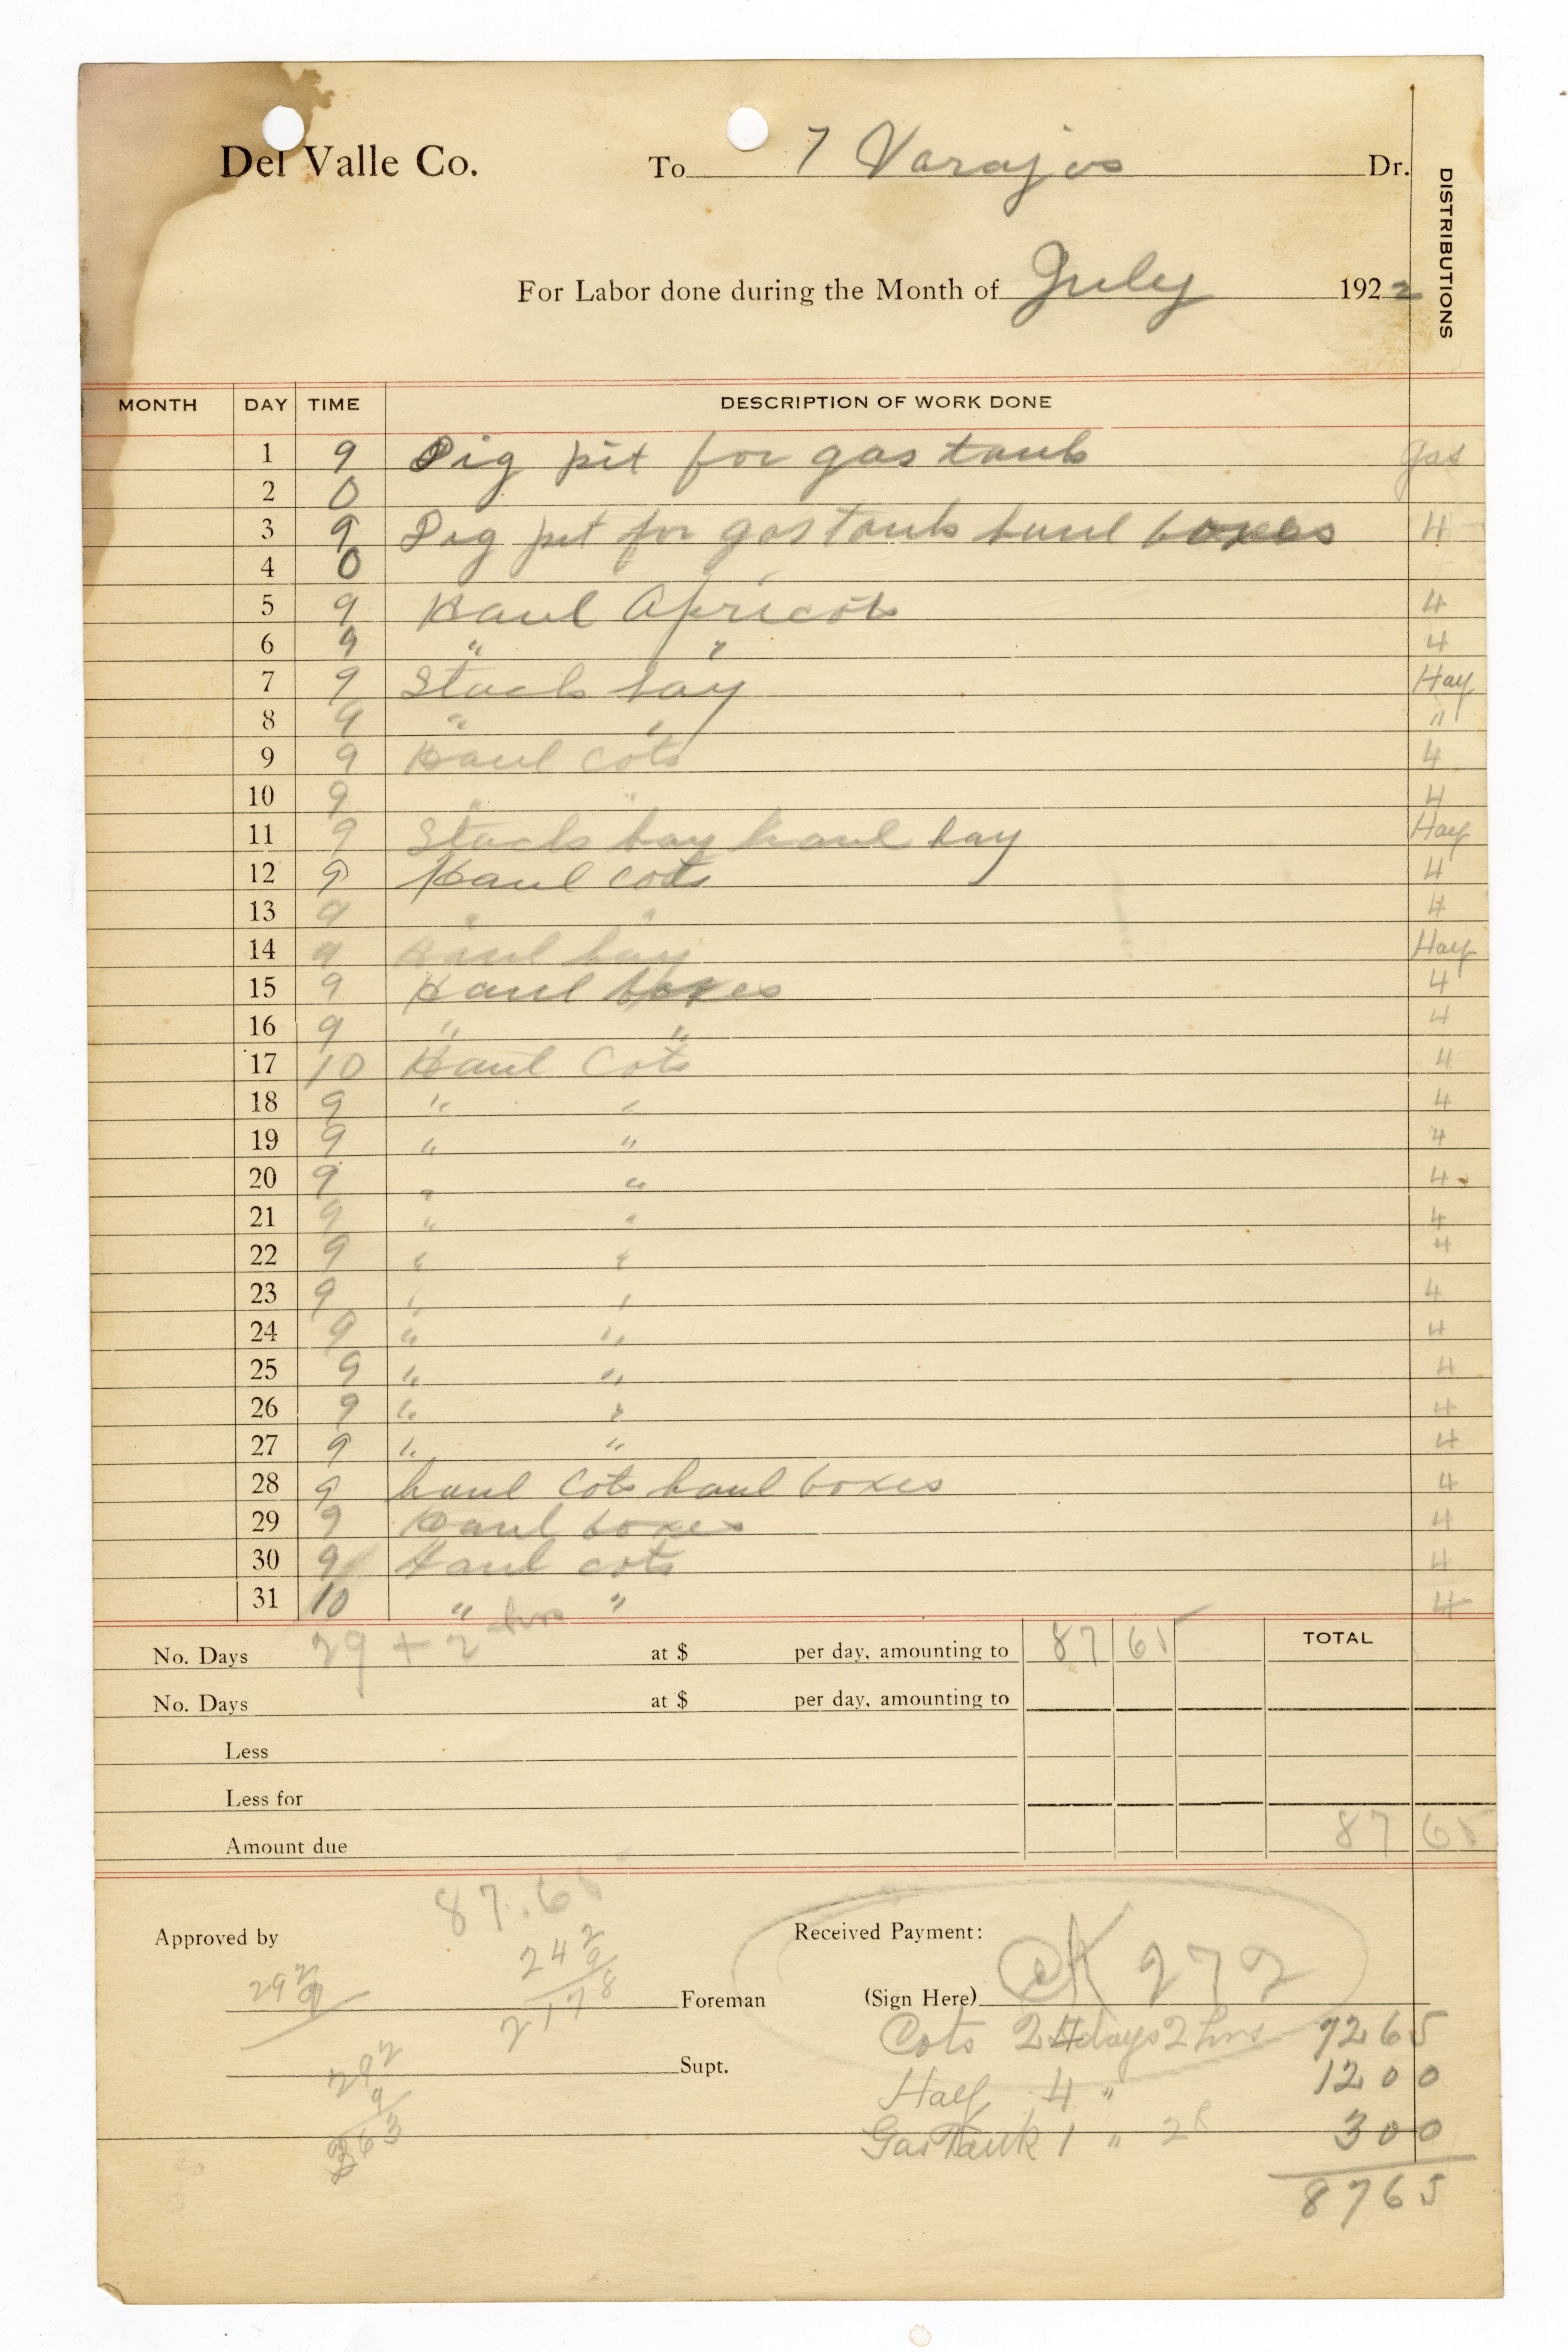 Del Valle Co. To 7 Varajos Dr.
DISTRIBUTIONS
For Labor done during the Month of July 1922
MONTH DAY TIME DESCRIPTION OF WORK DONE
1 9 Dig pit for gas tank Gas
2 0
3 9 Dig pit for gas tank haul boxes 4
4 0
5 9 Haul Apricots 4
6 9 " " 4
7 9 Stack hay Hay
8 9 " " "
9 9 Haul cots 4
10 9 " " 4
11 9 Stack hay haul hay Hay
12 9 Haul cots 4
13 9 " " 4
14 9 Haul hay Hay
15 9 Haul boxes 4
16 9 " " 4
17 10 Haul Cots 4
18 9 " " 4
19 9 " " 4
20 9 " " 4
21 9 " " 4
22 9 " " 4
23 9 " " 4
24 9 " " 4
25 9 " " 4
26 9 " " 4
27 9 " " 4
28 9 haul Cots haul boxes 4
29 9 Haul boxes 4
30 9 Haul cots 4
31 10 " " 4
No. Days 29 + 2 hrs at $ per day, amounting to 87 65 TOTAL
No. Days at $ per day, amounting to
Less
Less for
Amount due 87 65
87.65
Approved by Received Payment:
29 2 9
24 2
9
2178
Foreman (Sign Here) CK 272
Cots 24 days 2 hrs 7265
Supt.
29 2
9
263
Hay 4 " 1200
Gas Tank 1 " 300
8765